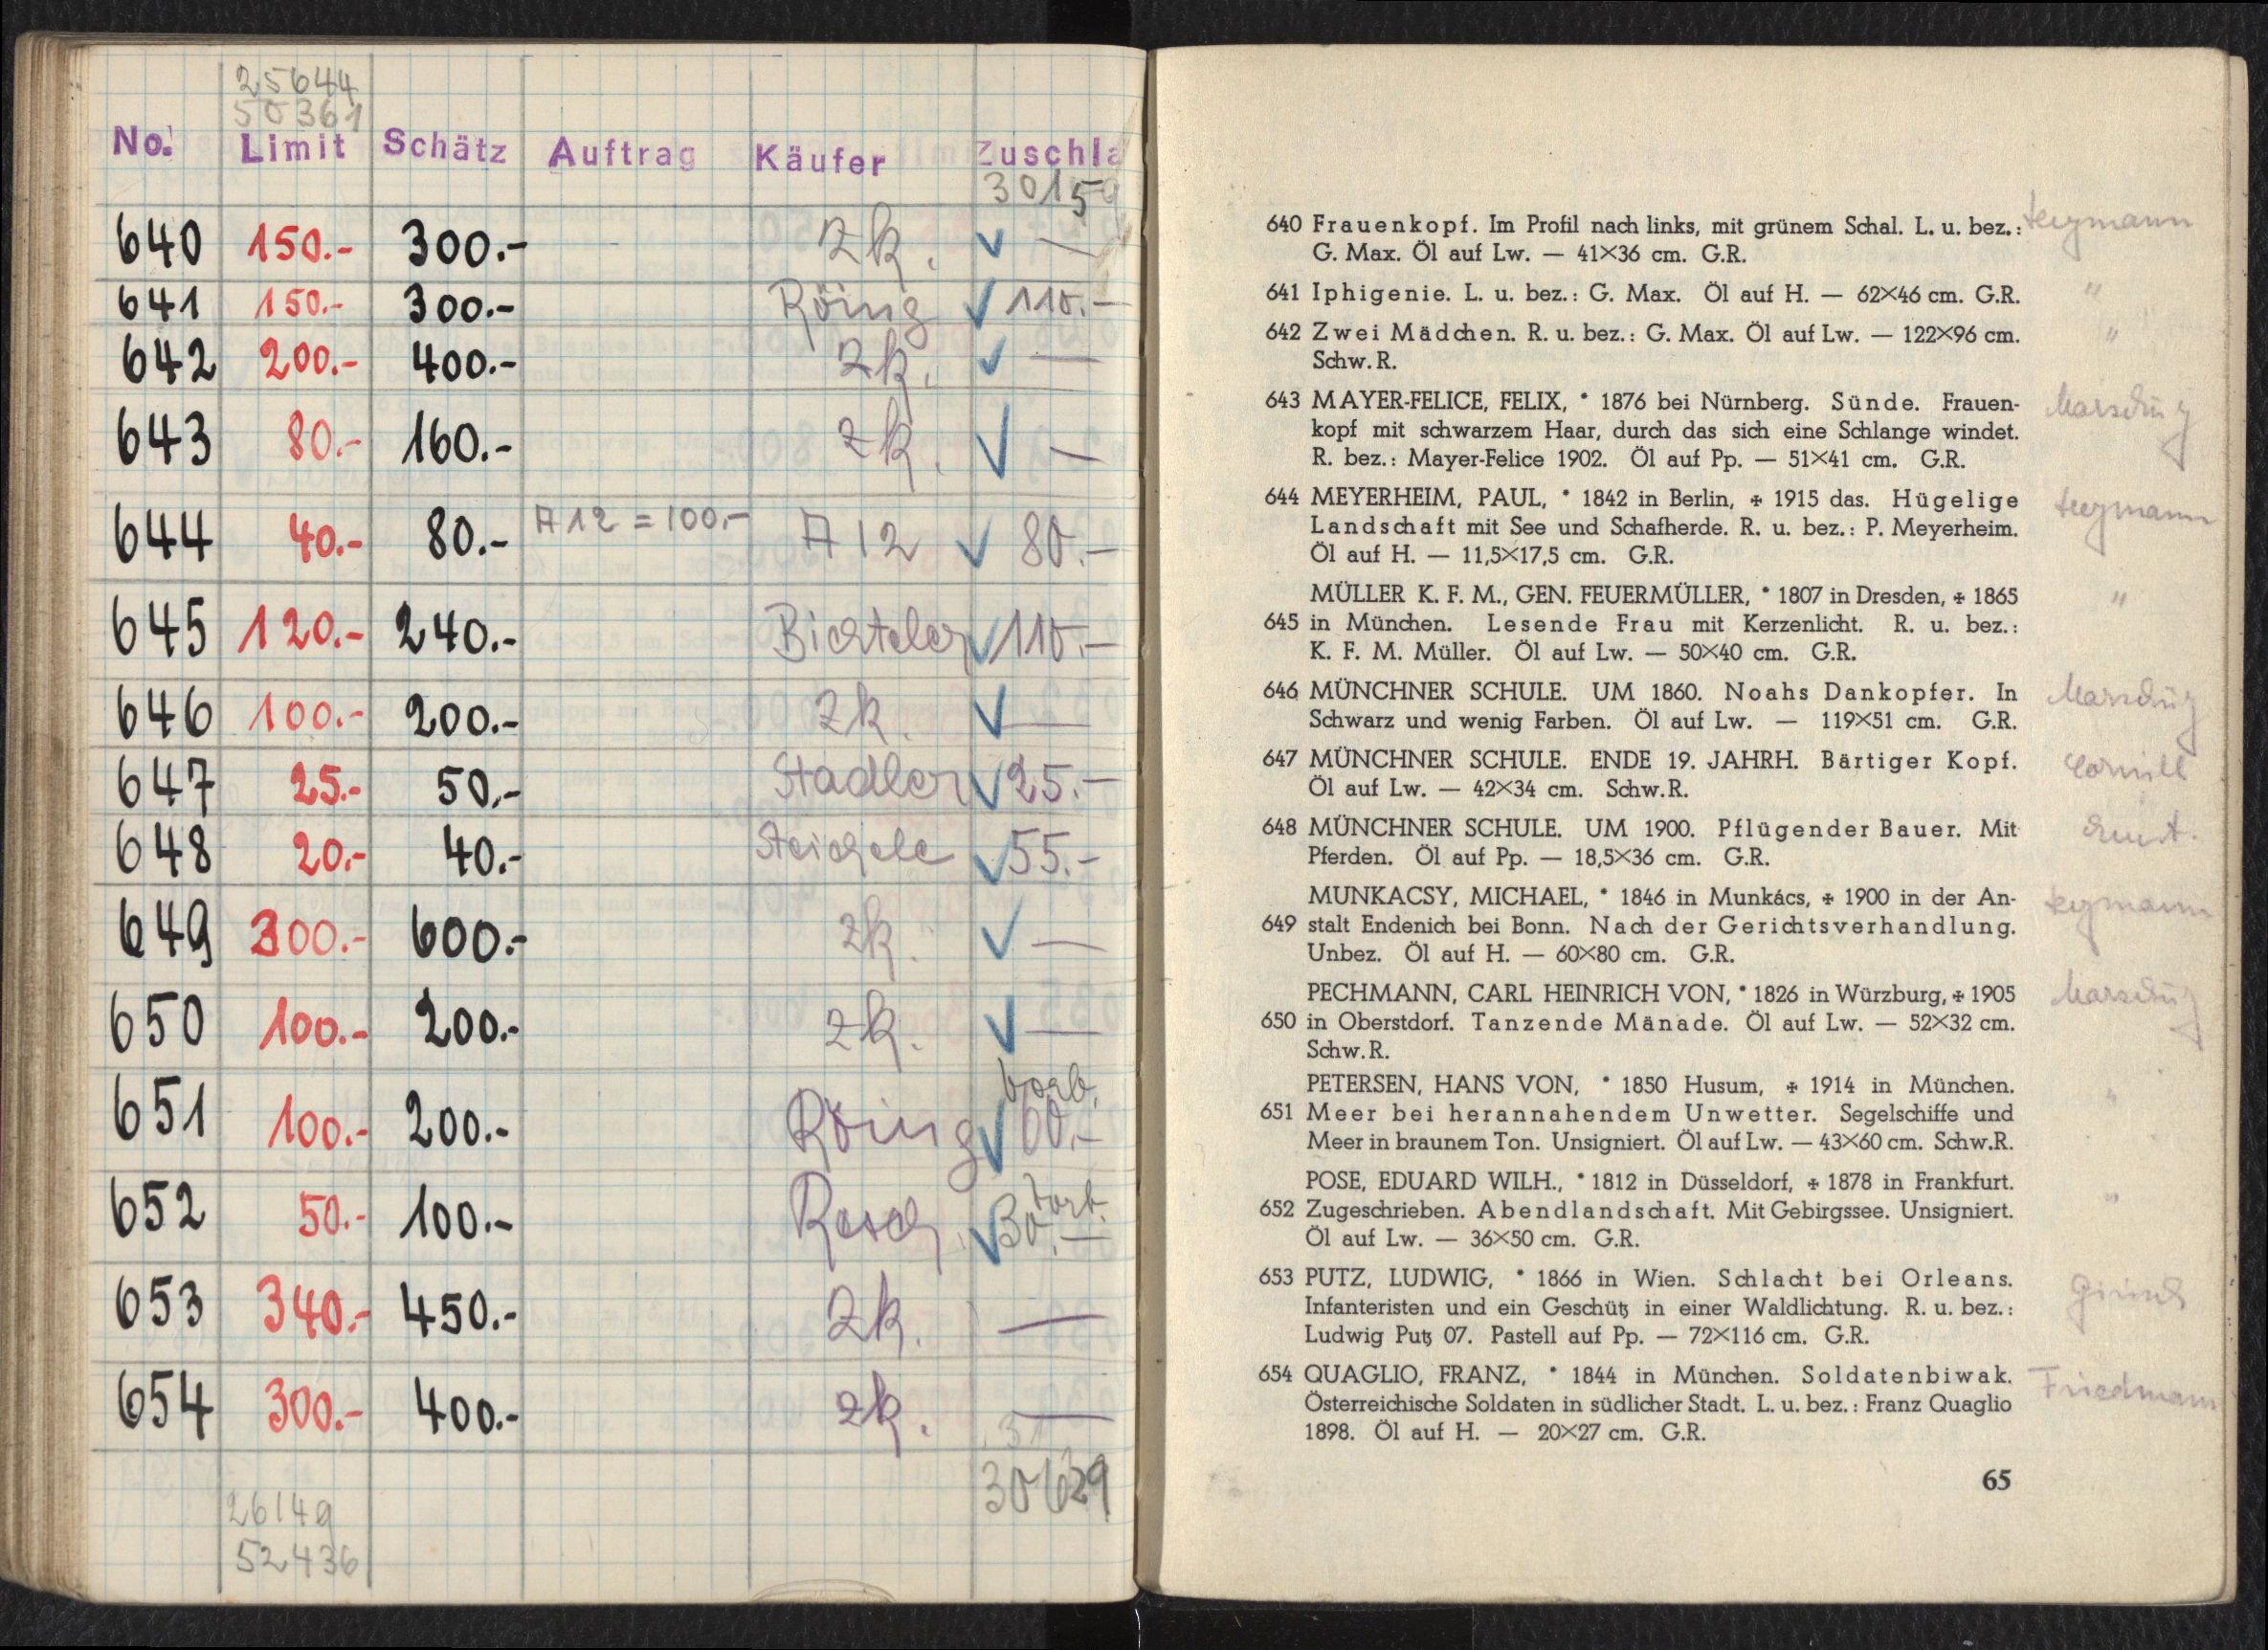 25644
50361
No. Limit Schätz Auftrag Käufer Zuschla
3015
640 150.- 300.- zk. —
641 150.- 300.- Röing 110.-
642 200.- 400.- zk. —
643 80.- 160.- zk. —
644 40.- 80.- A12 = 100.- A12 80.-
645 120.- 240.- Bichteler 110.-
646 100.- 200.- zk. —
647 25.- 50.- Stadler 25.-
648 20.- 40.- Steichele 55.-
649 300.- 600.- zk. —
650 100.- 200.- zk. —
651 100.- 200.- Röing 60.-
652 50.- 100.- Resch 30.-
653 340.- 450.- zk. —
654 300.- 400.- zk. —
30629
26149
52436
640 Frauenkopf. Im Profil nach links, mit grünem Schal. L. u. bez.:
G. Max. Öl auf Lw. — 41×36 cm. G.R.
641 Iphigenie. L. u. bez.: G. Max. Öl auf H. — 62×46 cm. G.R. "
642 Zwei Mädchen. R. u. bez.: G. Max. Öl auf Lw. — 122×96 cm. "
Schw. R.
643 MAYER-FELICE, FELIX, * 1876 bei Nürnberg. Sünde. Frauen-
kopf mit schwarzem Haar, durch das sich eine Schlange windet.
R. bez.: Mayer-Felice 1902. Öl auf Pp. — 51×41 cm. G.R.
644 MEYERHEIM, PAUL, * 1842 in Berlin, ✠ 1915 das. Hügelige
Landschaft mit See und Schafherde. R. u. bez.: P. Meyerheim.
Öl auf H. — 11,5×17,5 cm. G.R.
MÜLLER K. F. M., GEN. FEUERMÜLLER, * 1807 in Dresden, ✠ 1865 "
645 in München. Lesende Frau mit Kerzenlicht. R. u. bez.:
K. F. M. Müller. Öl auf Lw. — 50×40 cm. G.R.
646 MÜNCHNER SCHULE. UM 1860. Noahs Dankopfer. In
Schwarz und wenig Farben. Öl auf Lw. — 119×51 cm. G.R.
647 MÜNCHNER SCHULE. ENDE 19. JAHRH. Bärtiger Kopf.
Öl auf Lw. — 42×34 cm. Schw.R.
648 MÜNCHNER SCHULE. UM 1900. Pflügender Bauer. Mit
Pferden. Öl auf Pp. — 18,5×36 cm. G.R.
MUNKACSY, MICHAEL, * 1846 in Munkács, ✠ 1900 in der An-
649 stalt Endenich bei Bonn. Nach der Gerichtsverhandlung.
Unbez. Öl auf H. — 60×80 cm. G.R.
PECHMANN, CARL HEINRICH VON, * 1826 in Würzburg, ✠ 1905
650 in Oberstdorf. Tanzende Mänade. Öl auf Lw. — 52×32 cm.
Schw. R.
PETERSEN, HANS VON, * 1850 Husum, ✠ 1914 in München. "
651 Meer bei herannahendem Unwetter. Segelschiffe und
Meer in braunem Ton. Unsigniert. Öl auf Lw. — 43×60 cm. Schw.R.
POSE, EDUARD WILH., * 1812 in Düsseldorf, ✠ 1878 in Frankfurt. "
652 Zugeschrieben. Abendlandschaft. Mit Gebirgssee. Unsigniert.
Öl auf Lw. — 36×50 cm. G.R.
653 PUTZ, LUDWIG, * 1866 in Wien. Schlacht bei Orleans.
Infanteristen und ein Geschütz in einer Waldlichtung. R. u. bez.:
Ludwig Putz 07. Pastell auf Pp. — 72×116 cm. G.R.
654 QUAGLIO, FRANZ, * 1844 in München. Soldatenbiwak. Friedmann
Österreichische Soldaten in südlicher Stadt. L. u. bez.: Franz Quaglio
1898. Öl auf H. — 20×27 cm. G.R.
65